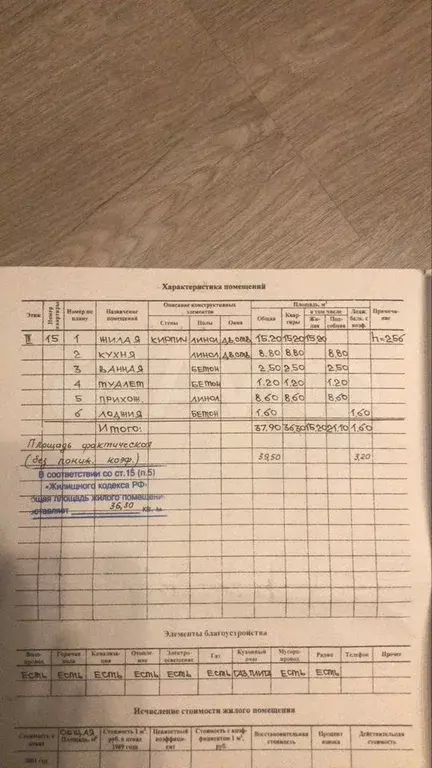 Характеристика помещений
Этаж Номер квартиры Номер по плану Назначение помещений Описание конструктивных элементов Площадь, м²
Общая Квартиры в том числе Лодж. балк. с коэф. Примечание
Стены Полы Окна Жилая Подсобная
III 15 1 ЖИЛАЯ КИРПИЧ ЛИНОЛ ДВ.ОТВ. 15.20 15.20 15.20 h=2.56
2 КУХНЯ ЛИНОЛ ДВ.ОТВ. 8.80 8.80 8.80
3 ВАННАЯ БЕТОН 2.50 2.50 2.50
4 ТУАЛЕТ БЕТОН 1.20 1.20 1.20
5 ПРИХОЖ. ЛИНОЛ. 8.60 8.60 8.60
6 ЛОДЖИЯ БЕТОН 1.60 1.60
ИТОГО: 37.90 36.30 15.20 21.10 1.60
Площадь фактическая
(без пониж. коэф.) 39,50 3,20
В соответствии со ст.15 (п.5)
«Жилищного кодекса РФ»
общая площадь жилого помещени
оставляет 36,30 кв. м.
Элементы благоустройства
Водопровод Горячая вода Канализация Отопление Электроосвещение Газ Кухонный очаг Мусоропровод Радио Телефон Прочее
ЕСТЬ ЕСТЬ ЕСТЬ ЕСТЬ ЕСТЬ ЕСТЬ ГАЗ.ПЛИТА ЕСТЬ ЕСТЬ
Исчисление стоимости жилого помещения
Стоимость в ценах ОБЩАЯ Площадь, м² Стоимость 1 м², руб. в ценах 1969 года Ценностный коэффициент Стоимость с коэффициентом 1 м², руб. Восстановительная стоимость Процент износа Действительная стоимость